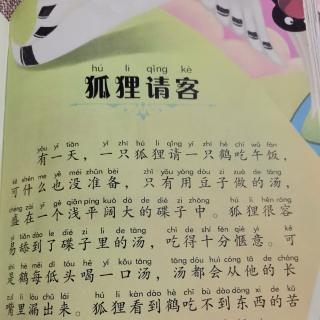 hú li qǐng kè
狐狸请客
yǒu yì tiān yì zhī hú li qǐng yì zhī hè chī wǔ fàn
有一天，一只狐狸请一只鹤吃午饭，
kě shén me yě méi zhǔn bèi zhǐ yǒu yòng dòu zi zuò de tāng
可什么也没准备，只有用豆子做的汤，
chéng zài yí gè qiǎn píng kuò dà de dié zi zhōng hú li hěn róng
盛在一个浅平阔大的碟子中。狐狸很容
yì tiǎn dào le dié zi li de tāng chī de shí fēn qiè yì kě
易舔到了碟子里的汤，吃得十分惬意。可
shì hè měi dī tóu hē yì kǒu tāng tāng dōu huì cóng tā de cháng
是鹤每低头喝一口汤，汤都会从他的长
zuǐ li lòu chū lái hú li kàn dào hè chī bù dào dōng xi de kǔ
嘴里漏出来。狐狸看到鹤吃不到东西的苦